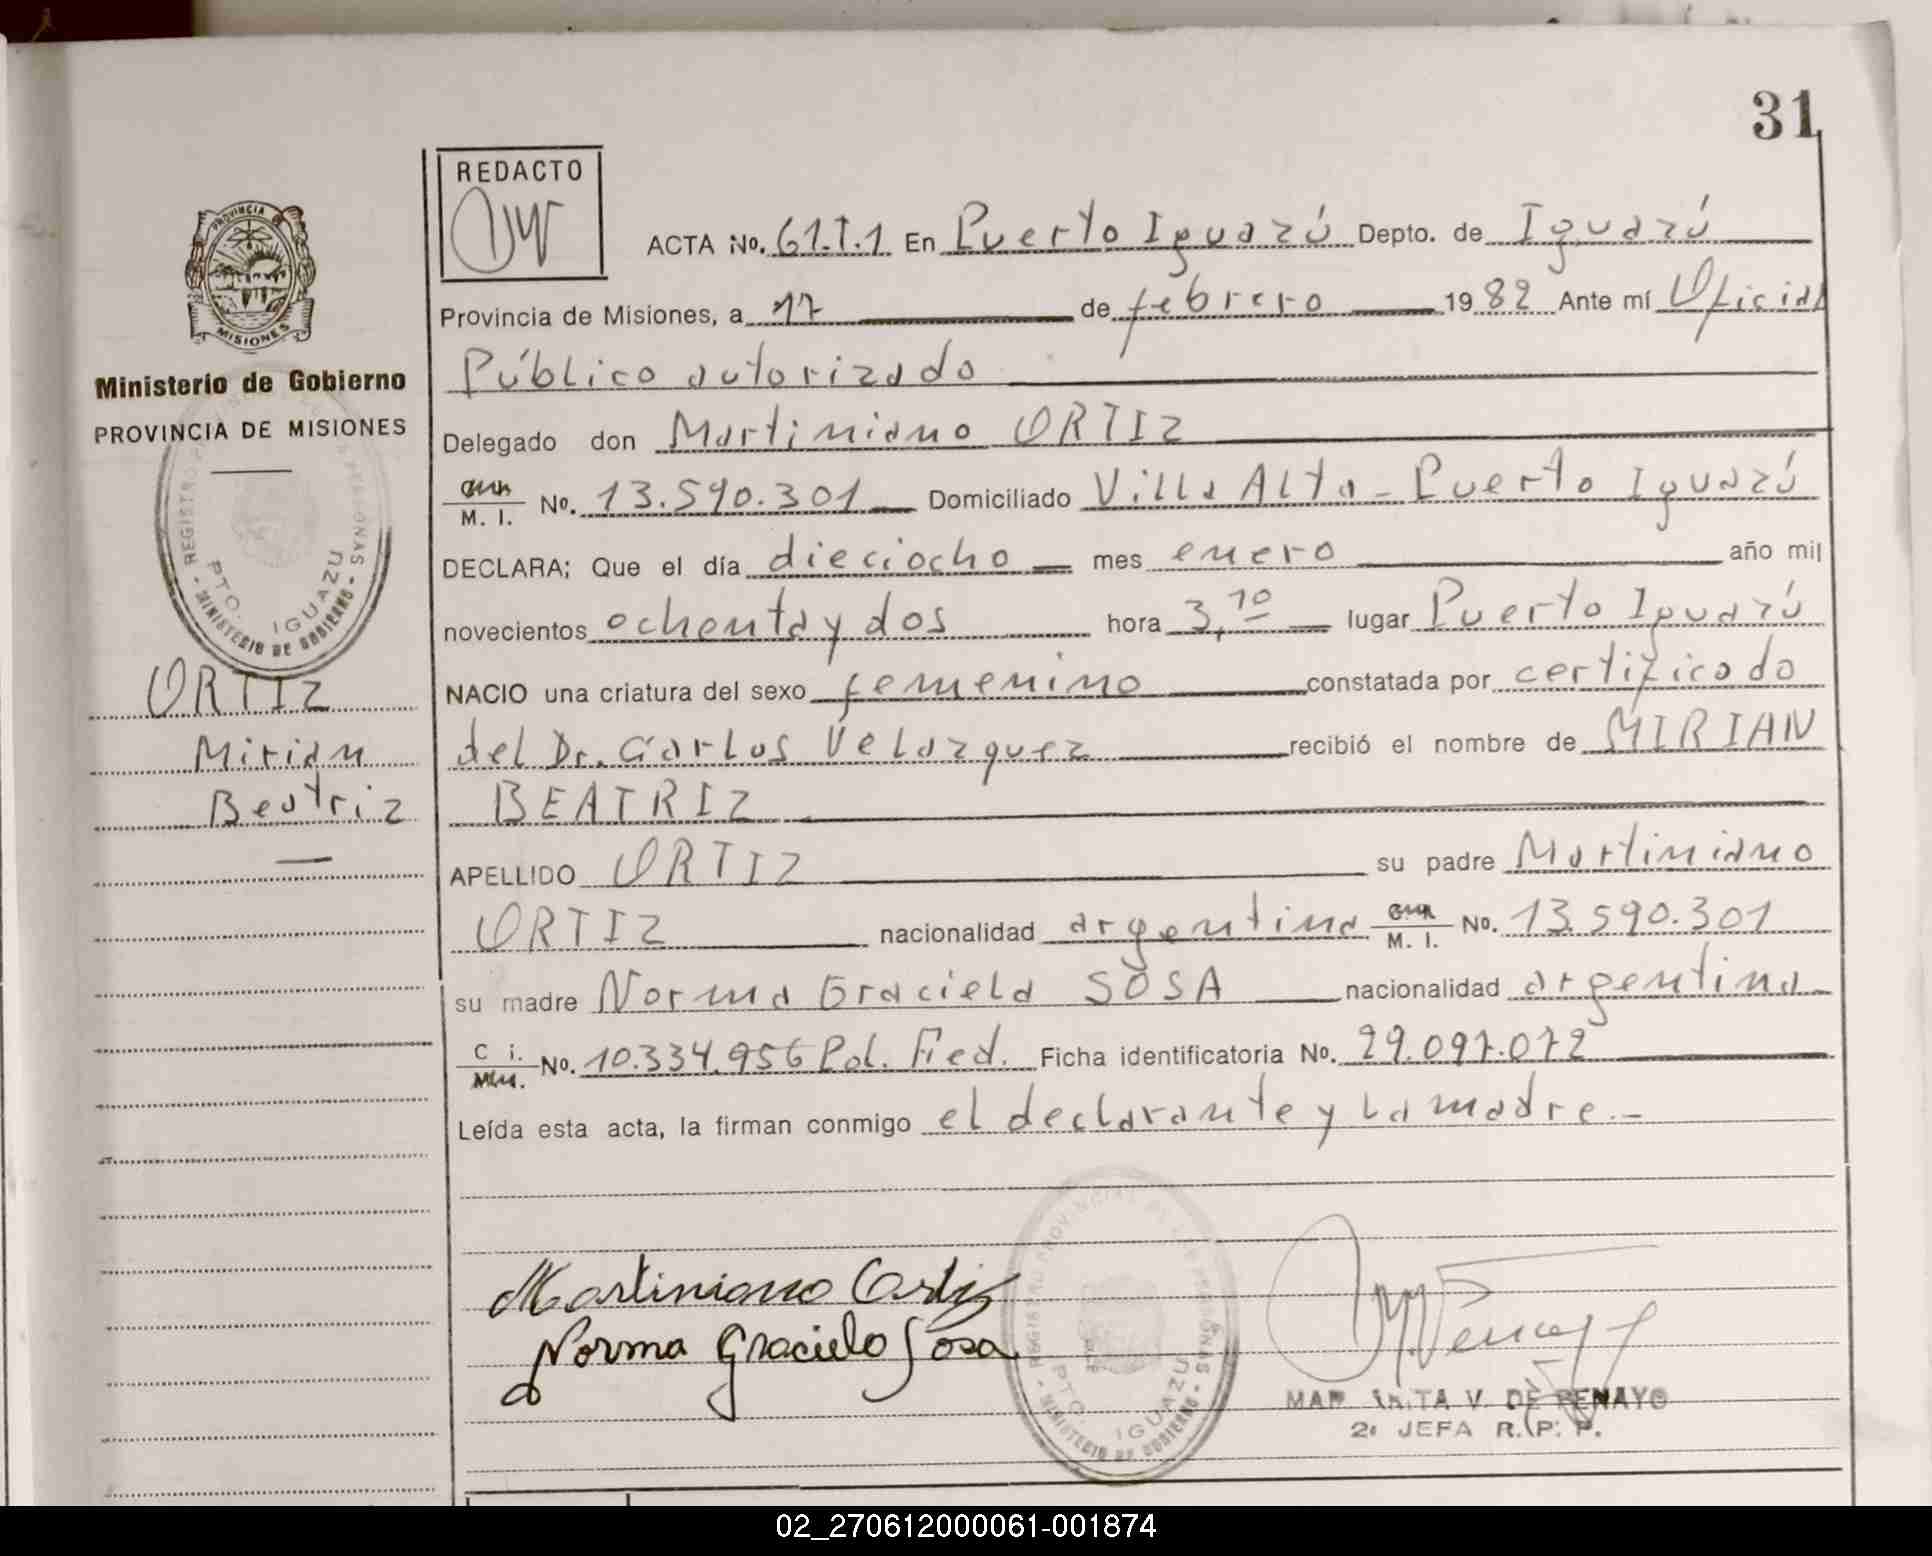 31
REDACTO
PROVINCIA DE
MISIONES
Ministerio de Gobierno
PROVINCIA DE MISIONES
PTO. IGUAZU
- MINISTERIO DE GOBIERNO -
ORTIZ
Mirian
Beatriz
ACTA No. 61.T.1 En Puerto Iguazú Depto. de Iguazú
Provincia de Misiones, a 17 de febrero 1982 Ante mí Oficial
Público autorizado
Delegado don Martiniano ORTIZ
M. I. No. 13.590.301 Domiciliado Villa Alta - Puerto Iguazú
DECLARA; Que el día dieciocho mes enero año mil
novecientos ochenta y dos hora 3,10 lugar Puerto Iguazú
NACIO una criatura del sexo femenino constatada por certificado
del Dr. Carlos Velazquez recibió el nombre de MIRIAN
BEATRIZ
APELLIDO ORTIZ su padre Martiniano
ORTIZ nacionalidad argentina M. I. No. 13.590.301
su madre Norma Graciela SOSA nacionalidad argentina
C i. No. 10.334.956 Pol. Fed. Ficha identificatoria No. 29.097.072
Leída esta acta, la firman conmigo el declarante y la madre.-
Martiniano Ortiz
Norma Graciela Sosa
PTO. IGUAZU
- MINISTERIO DE GOBIERNO -
V. DE PENAYO
2ª JEFA R. P. P.
02_270612000061-001874